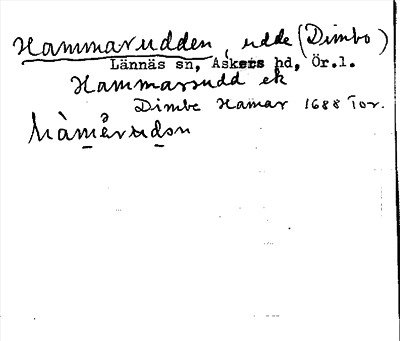 Hammarudden, udde (Dimbo)
Lännäs sn, Askers hd, Ör.l.
Hammarsudd ek
Dimbe Hamar 1688 Tor.
hàmərudən